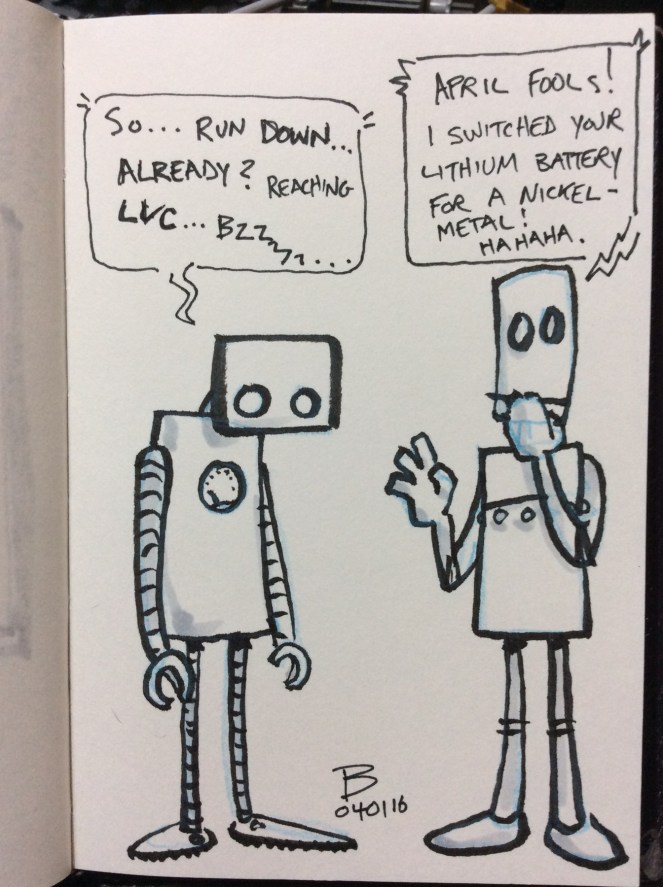 So... RUN DOWN...
ALREADY? REACHING
LVC... BZZzzz....
APRIL FOOLS!
I SWITCHED YOUR
LITHIUM BATTERY
FOR A NICKEL-
METAL!
HAHAHA.
B
040116